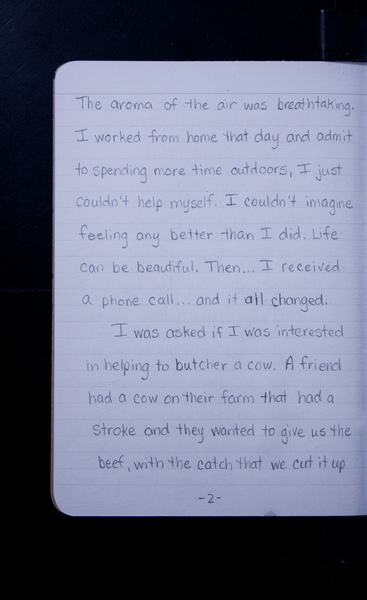 The aroma of the air was breathtaking.
I worked from home that day and admit
to spending more time outdoors, I just
couldn't help myself. I couldn't imagine
feeling any better than I did. Life
can be beautiful. Then... I received
a phone call... and it all changed.
I was asked if I was interested
in helping to butcher a cow. A friend
had a cow on their farm that had a
stroke and they wanted to give us the
beef, with the catch that we cut it up
-2-